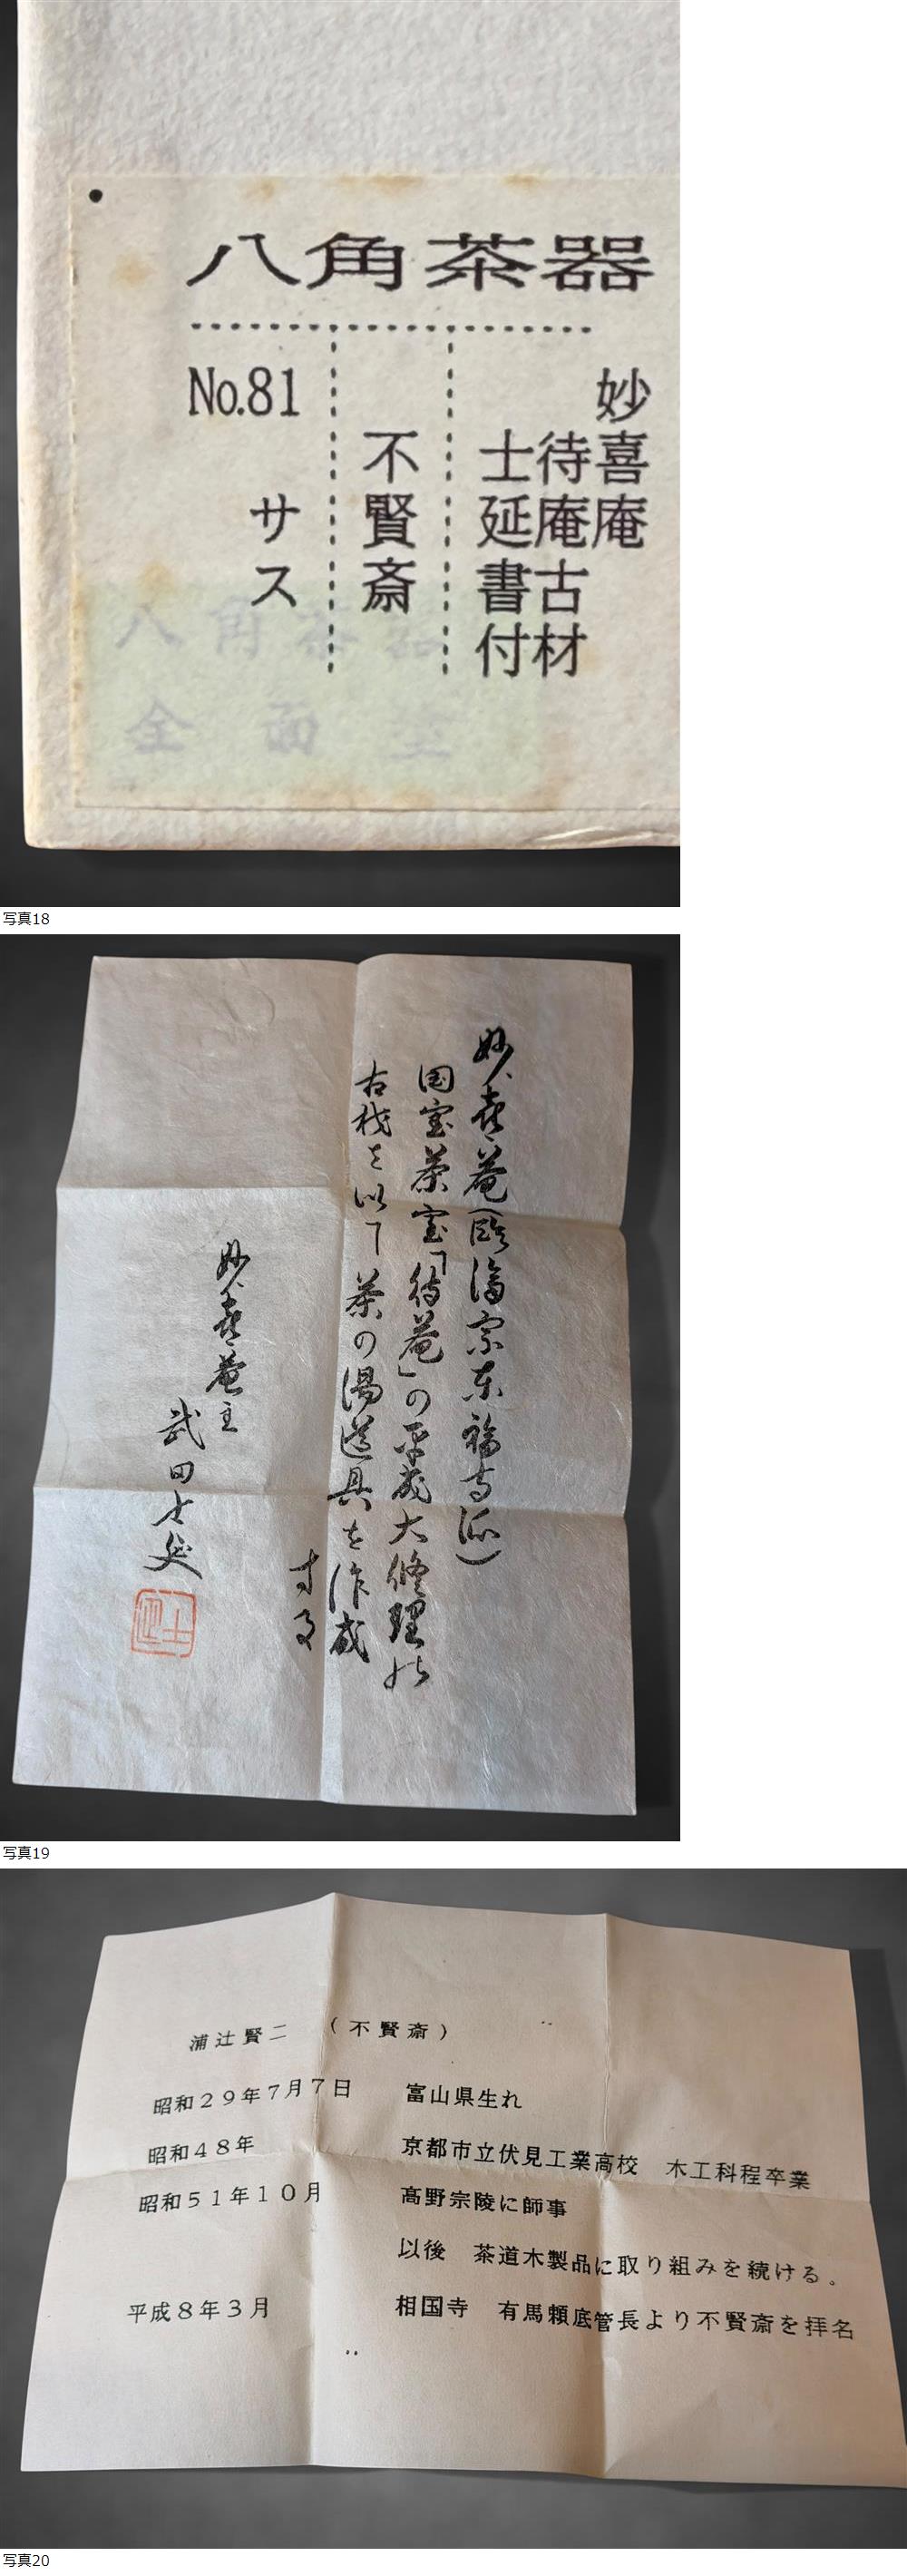 八角茶器
妙喜庵
待庵古材
士延書付
不賢斎
No.81
サス
八角茶器
全面
写真18
妙喜庵(臨済宗東福寺派)
国宝茶室「待庵」の平成大修理の
古材を以て茶の湯道具を作成
する
妙喜庵主
武田士延
士延
写真19
浦辻賢二 (不賢斎)
昭和29年7月7日 富山県生れ
昭和48年 京都市立伏見工業高校 木工科程卒業
昭和51年10月 髙野宗陵に師事
以後 茶道木製品に取り組みを続ける。
平成8年3月 相国寺 有馬頼底管長より不賢斎を拝名
写真20